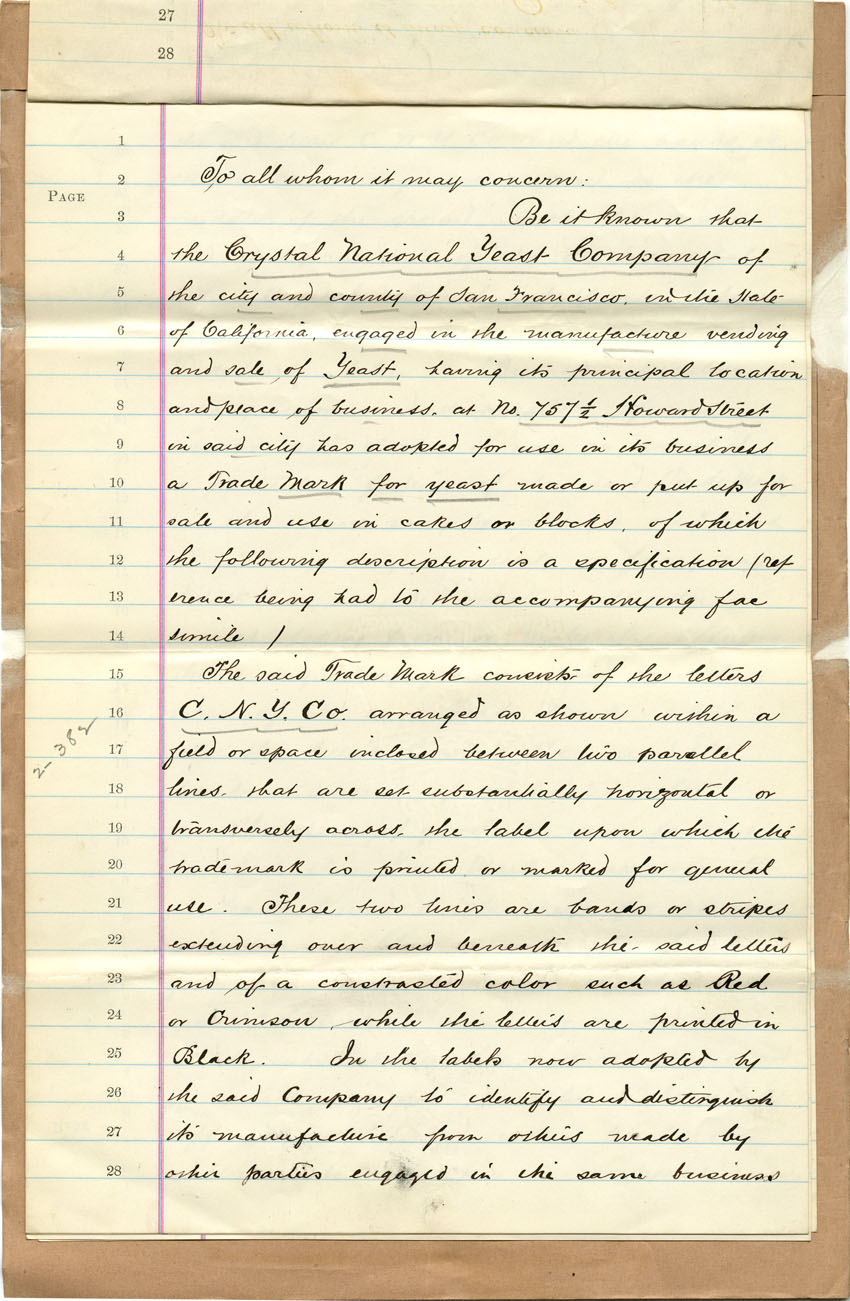 27
28
PAGE
1
2 To all whom it may concern:
3 Be it known that
4 the Crystal National Yeast Company of
5 the city and county of San Francisco, in the State
6 of California, engaged in the manufacture vending
7 and sale of Yeast, having its principal location
8 and place of business, at No. 757½ Howard Street
9 in said city has adopted for use in its business
10 a Trade Mark for yeast made or put up for
11 sale and use in cakes or blocks, of which
12 the following description is a specification (ref
13 erence being had to the accompanying fac
14 simile )
15 The said Trade Mark consists of the letters
16 C. N. Y. Co. arranged as shown within a
17 field or space inclosed between two parallel
18 lines, that are set substantially horizontal or
19 transversely across, the label upon which the
20 trademark is printed or marked for general
21 use. These two lines are bands or stripes
22 extending over and beneath the said letters
23 and of a constrasted color such as Red
24 or Crimson, while the letters are printed in
25 Black. In the labels now adopted by
26 the said Company to identify and distinguish
27 its manufacture from others made by
28 other parties engaged in the same business
2-382